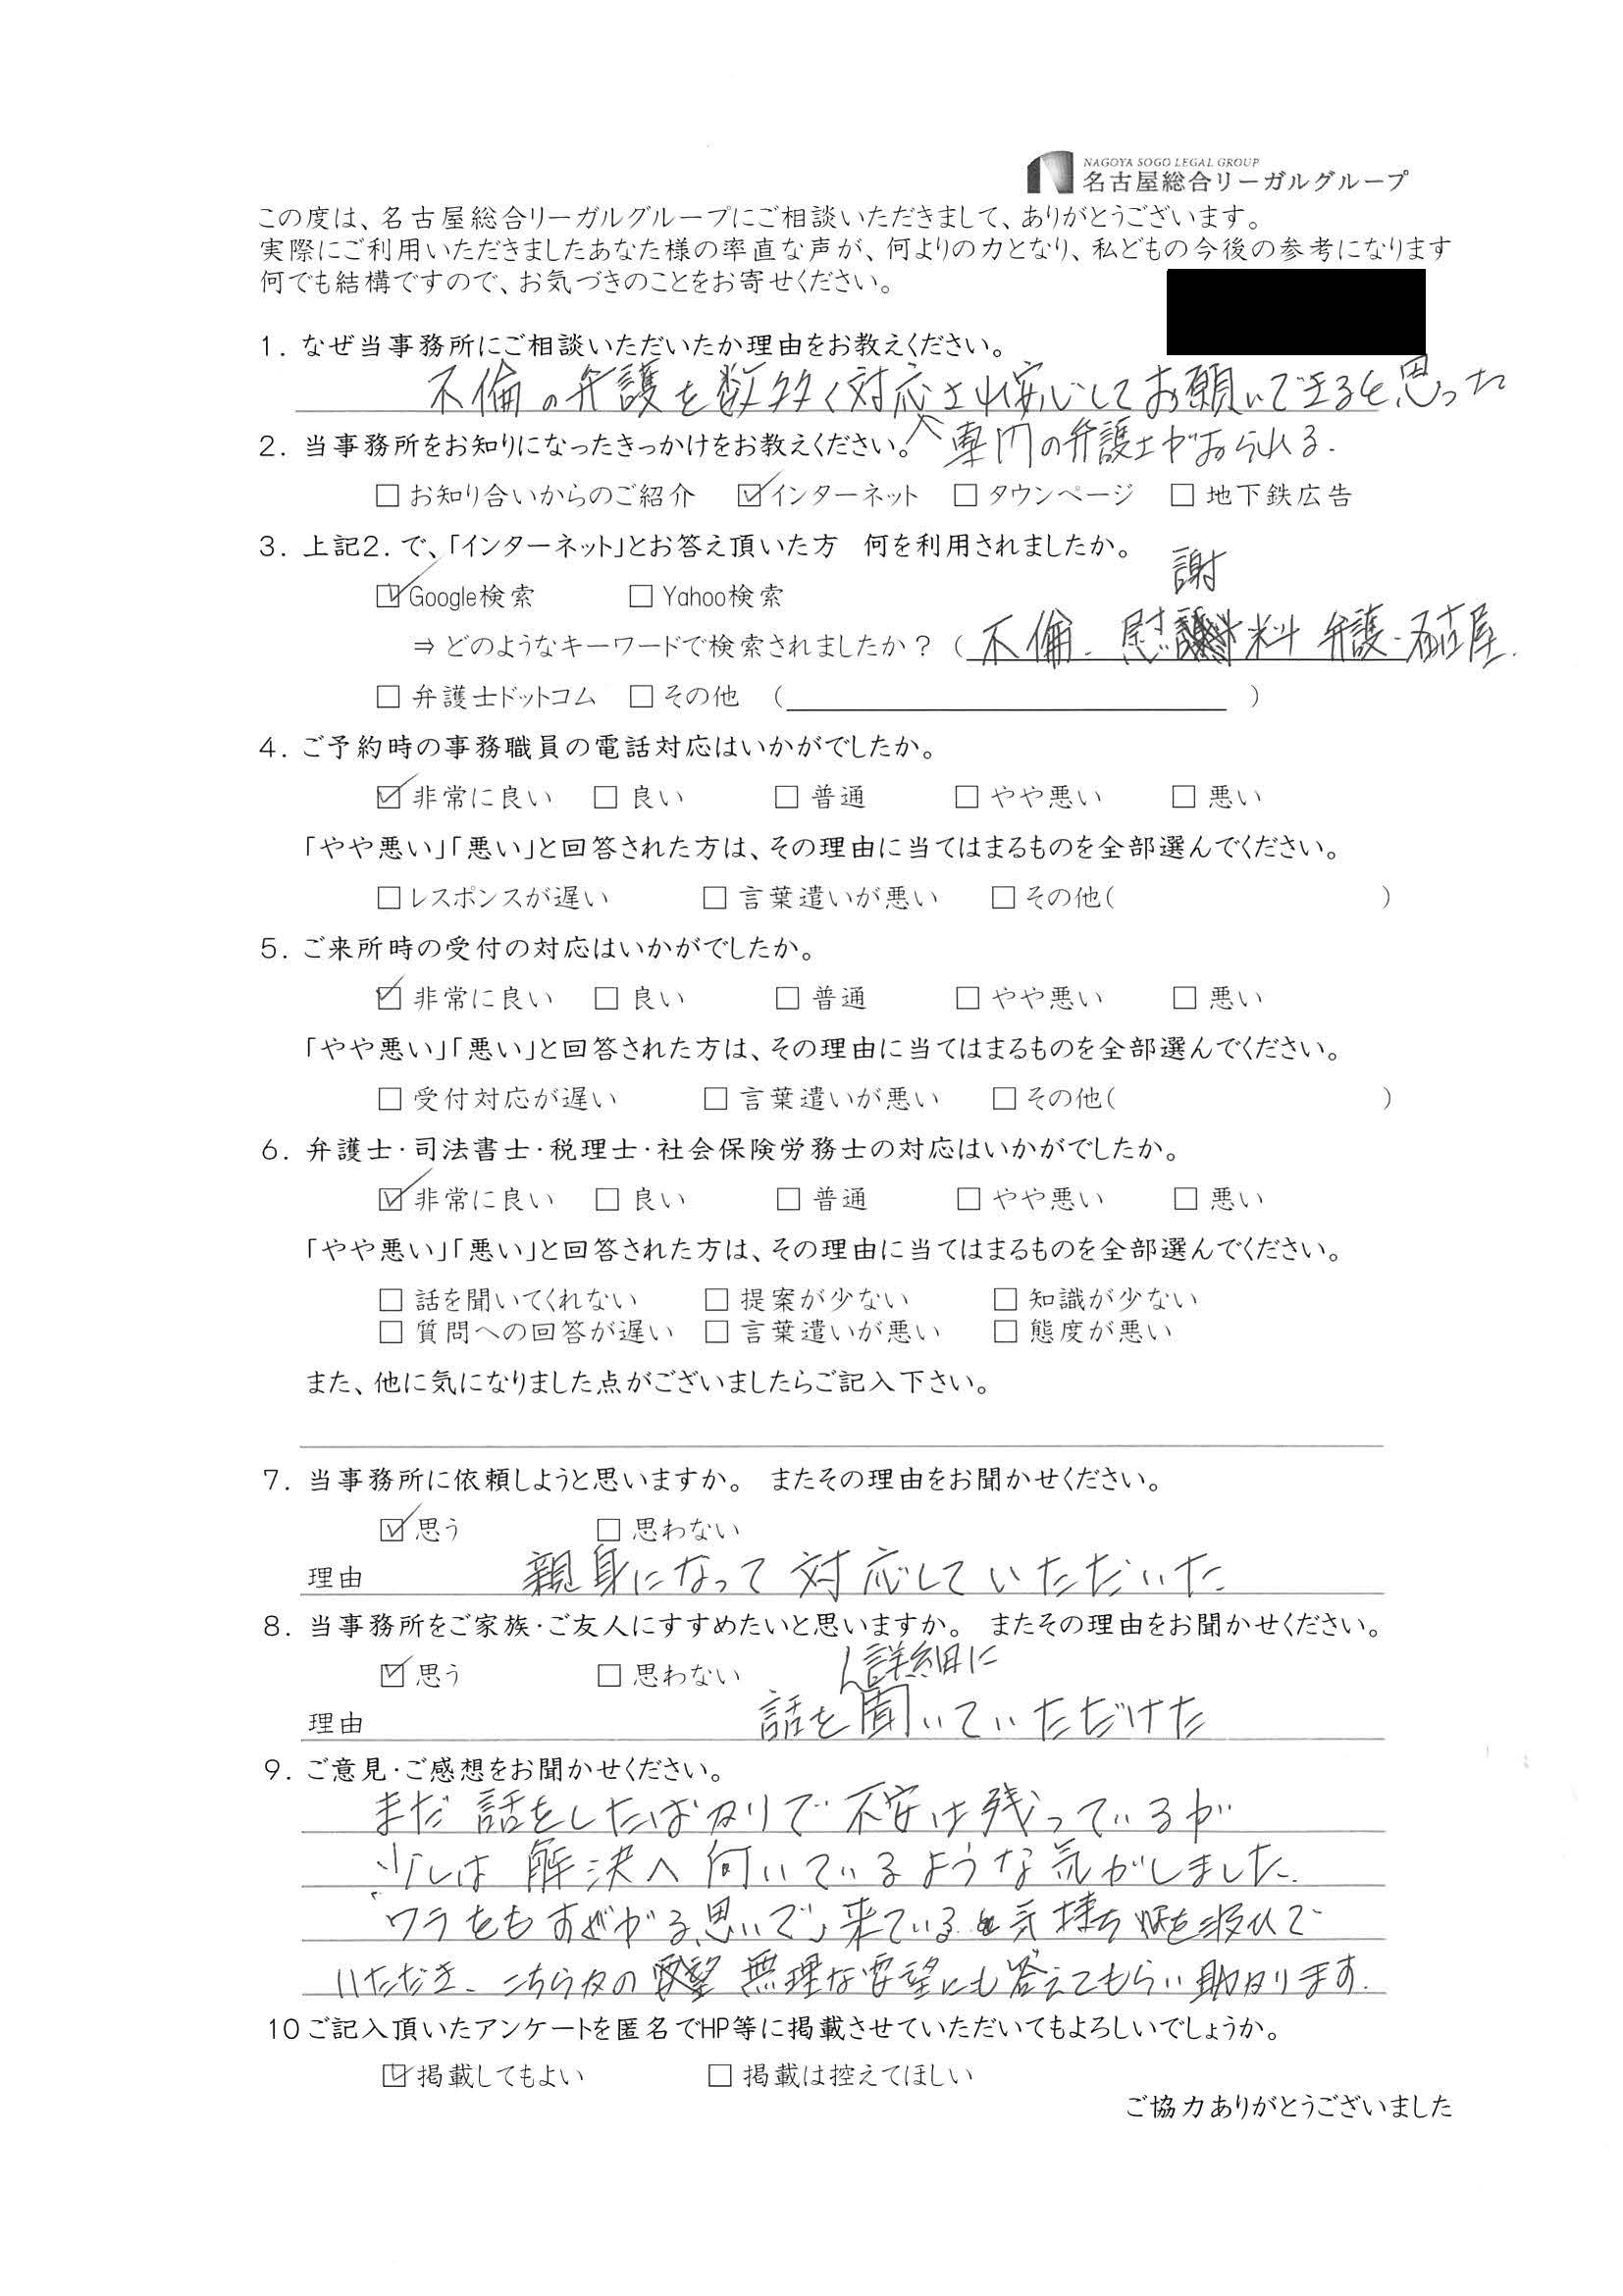 NAGOYA SOGO LEGAL GROUP
名古屋総合リーガルグループ
この度は、名古屋総合リーガルグループにご相談いただきまして、ありがとうございます。
実際にご利用いただきましたあなた様の率直な声が、何よりの力となり、私どもの今後の参考になります
何でも結構ですので、お気づきのことをお寄せください。
1. なぜ当事務所にご相談いただいたか理由をお教えください。
不倫の弁護を数多く対応され安心してお願いできると思った
2. 当事務所をお知りになったきっかけをお教えください。 専門の弁護士がおられる.
□ お知り合いからのご紹介 ☑ インターネット □ タウンページ □ 地下鉄広告
3. 上記2. で、「インターネット」とお答え頂いた方 何を利用されましたか。
☑ Google検索 □ Yahoo検索
謝
⇒ どのようなキーワードで検索されましたか？ ( 不倫. 慰料 弁護.名古屋.
□ 弁護士ドットコム □ その他 ( )
4. ご予約時の事務職員の電話対応はいかがでしたか。
☑ 非常に良い □ 良い □ 普通 □ やや悪い □ 悪い
「やや悪い」「悪い」と回答された方は、その理由に当てはまるものを全部選んでください。
□ レスポンスが遅い □ 言葉遣いが悪い □ その他( )
5. ご来所時の受付の対応はいかがでしたか。
☑ 非常に良い □ 良い □ 普通 □ やや悪い □ 悪い
「やや悪い」「悪い」と回答された方は、その理由に当てはまるものを全部選んでください。
□ 受付対応が遅い □ 言葉遣いが悪い □ その他( )
6. 弁護士・司法書士・税理士・社会保険労務士の対応はいかがでしたか。
☑ 非常に良い □ 良い □ 普通 □ やや悪い □ 悪い
「やや悪い」「悪い」と回答された方は、その理由に当てはまるものを全部選んでください。
□ 話を聞いてくれない □ 提案が少ない □ 知識が少ない
□ 質問への回答が遅い □ 言葉遣いが悪い □ 態度が悪い
また、他に気になりました点がございましたらご記入下さい。
7. 当事務所に依頼しようと思いますか。 またその理由をお聞かせください。
☑ 思う □ 思わない
理由 親身になって対応していただいた
8. 当事務所をご家族・ご友人にすすめたいと思いますか。 またその理由をお聞かせください。
☑ 思う □ 思わない 詳細に
理由 話を聞いていただけた
9. ご意見・ご感想をお聞かせください。
まだ話をしたばかりで不安は残っているが
少しは解決へ向いているような気がしました.
「ワラをもすがる思いで」来ている気持ちを汲んで
いただき、こちらの無理な要望にも答えてもらい助かります.
10 ご記入頂いたアンケートを匿名でHP等に掲載させていただいてもよろしいでしょうか。
☑ 掲載してもよい □ 掲載は控えてほしい
ご協力ありがとうございました